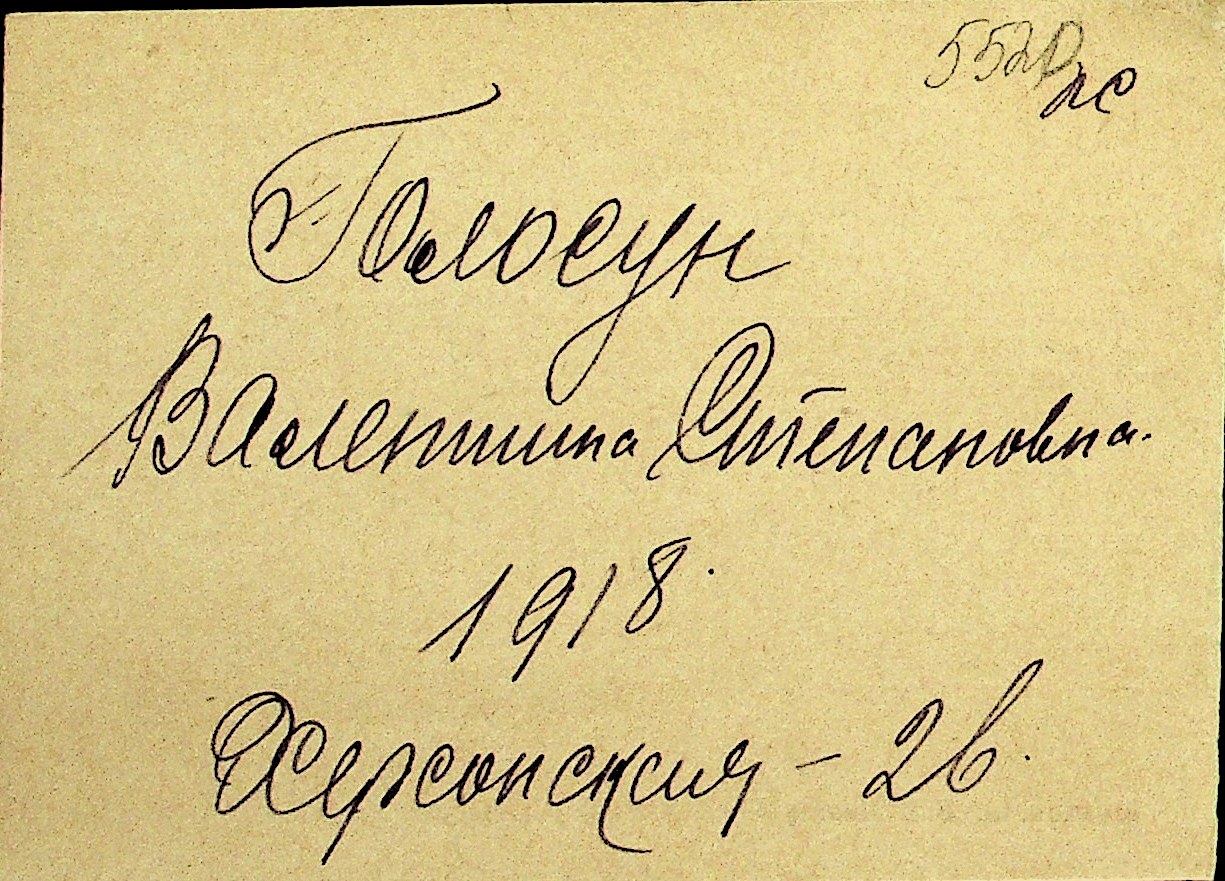 5520
лс
Голосун
Валентина Степановна.
1918.
Херсонския - 26.